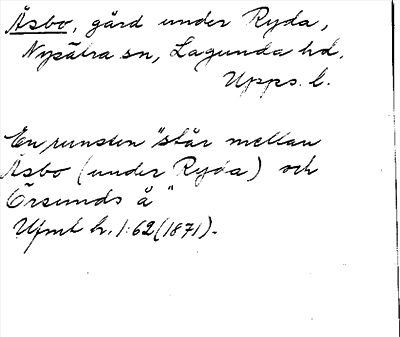 Åsbo, gård under Ryda,
Nysätra sn, Lagunda hd.
Upps. l.
En runsten "står mellan
Åsbo (under Ryda) och
Örsunds å"
Ufmt h. 1:62 (1871).